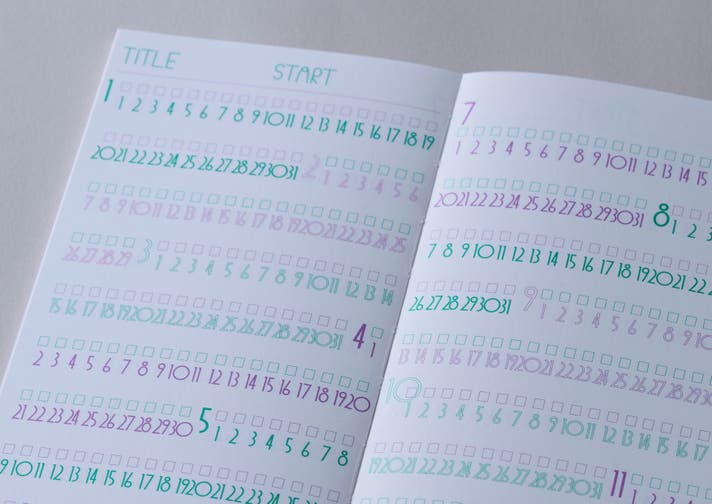 TITLE START
1 1 2 3 4 5 6 7 8 9 10 11 12 13 14 15 16 17 18 19
20 21 22 23 24 25 26 27 28 29 30 31 2 1 2 3 4 5 6
7 8 9 10 11 12 13 14 15 16 17 18 19 20 21 22 23 24 25
26 27 28 29 3 1 2 3 4 5 6 7 8 9 10 11 12 13 14
15 16 17 18 19 20 21 22 23 24 25 26 27 28 29 30 31 4 1
2 3 4 5 6 7 8 9 10 11 12 13 14 15 16 17 18 19 20
21 22 23 24 25 26 27 28 29 30 5 1 2 3 4 5 6 7 8
9 10 11 12 13 14 15 16 17 18 19 20 21 22 23 24 25 26 27
7
1 2 3 4 5 6 7 8 9 10 11 12 13 14 15
20 21 22 23 24 25 26 27 28 29 30 31 8 1 2 3
7 8 9 10 11 12 13 14 15 16 17 18 19 20 21 22
26 27 28 29 30 31 9 1 2 3 4 5 6 7 8 9 10
13 14 15 16 17 18 19 20 21 22 23 24 25 26 27 28 29
10 1 2 3 4 5 6 7 8 9 10 11 12 13 14 15 16 17
19 20 21 22 23 24 25 26 27 28 29 30 31 11 1 2 3